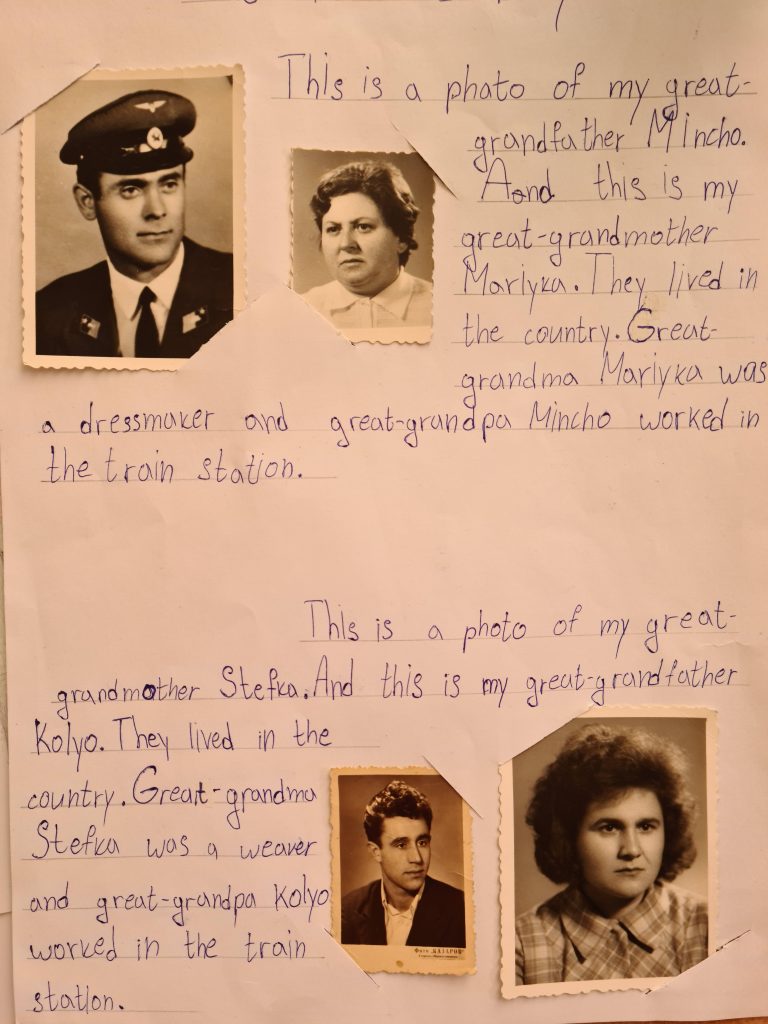 This is a photo of my great-
grandfather Mincho.
Aand this is my
great-grandmother
Mariyka. They lived in
the country. Great-
grandma Mariyka was
a dressmaker and great-grandpa Mincho worked in
the train station.
This is a photo of my great-
grandmother Stefka. And this is my great-grandfather
Kolyo. They lived in the
country. Great-grandma
Stefka was a weaver
and great-grandpa Kolyo
worked in the train
station.
Фото